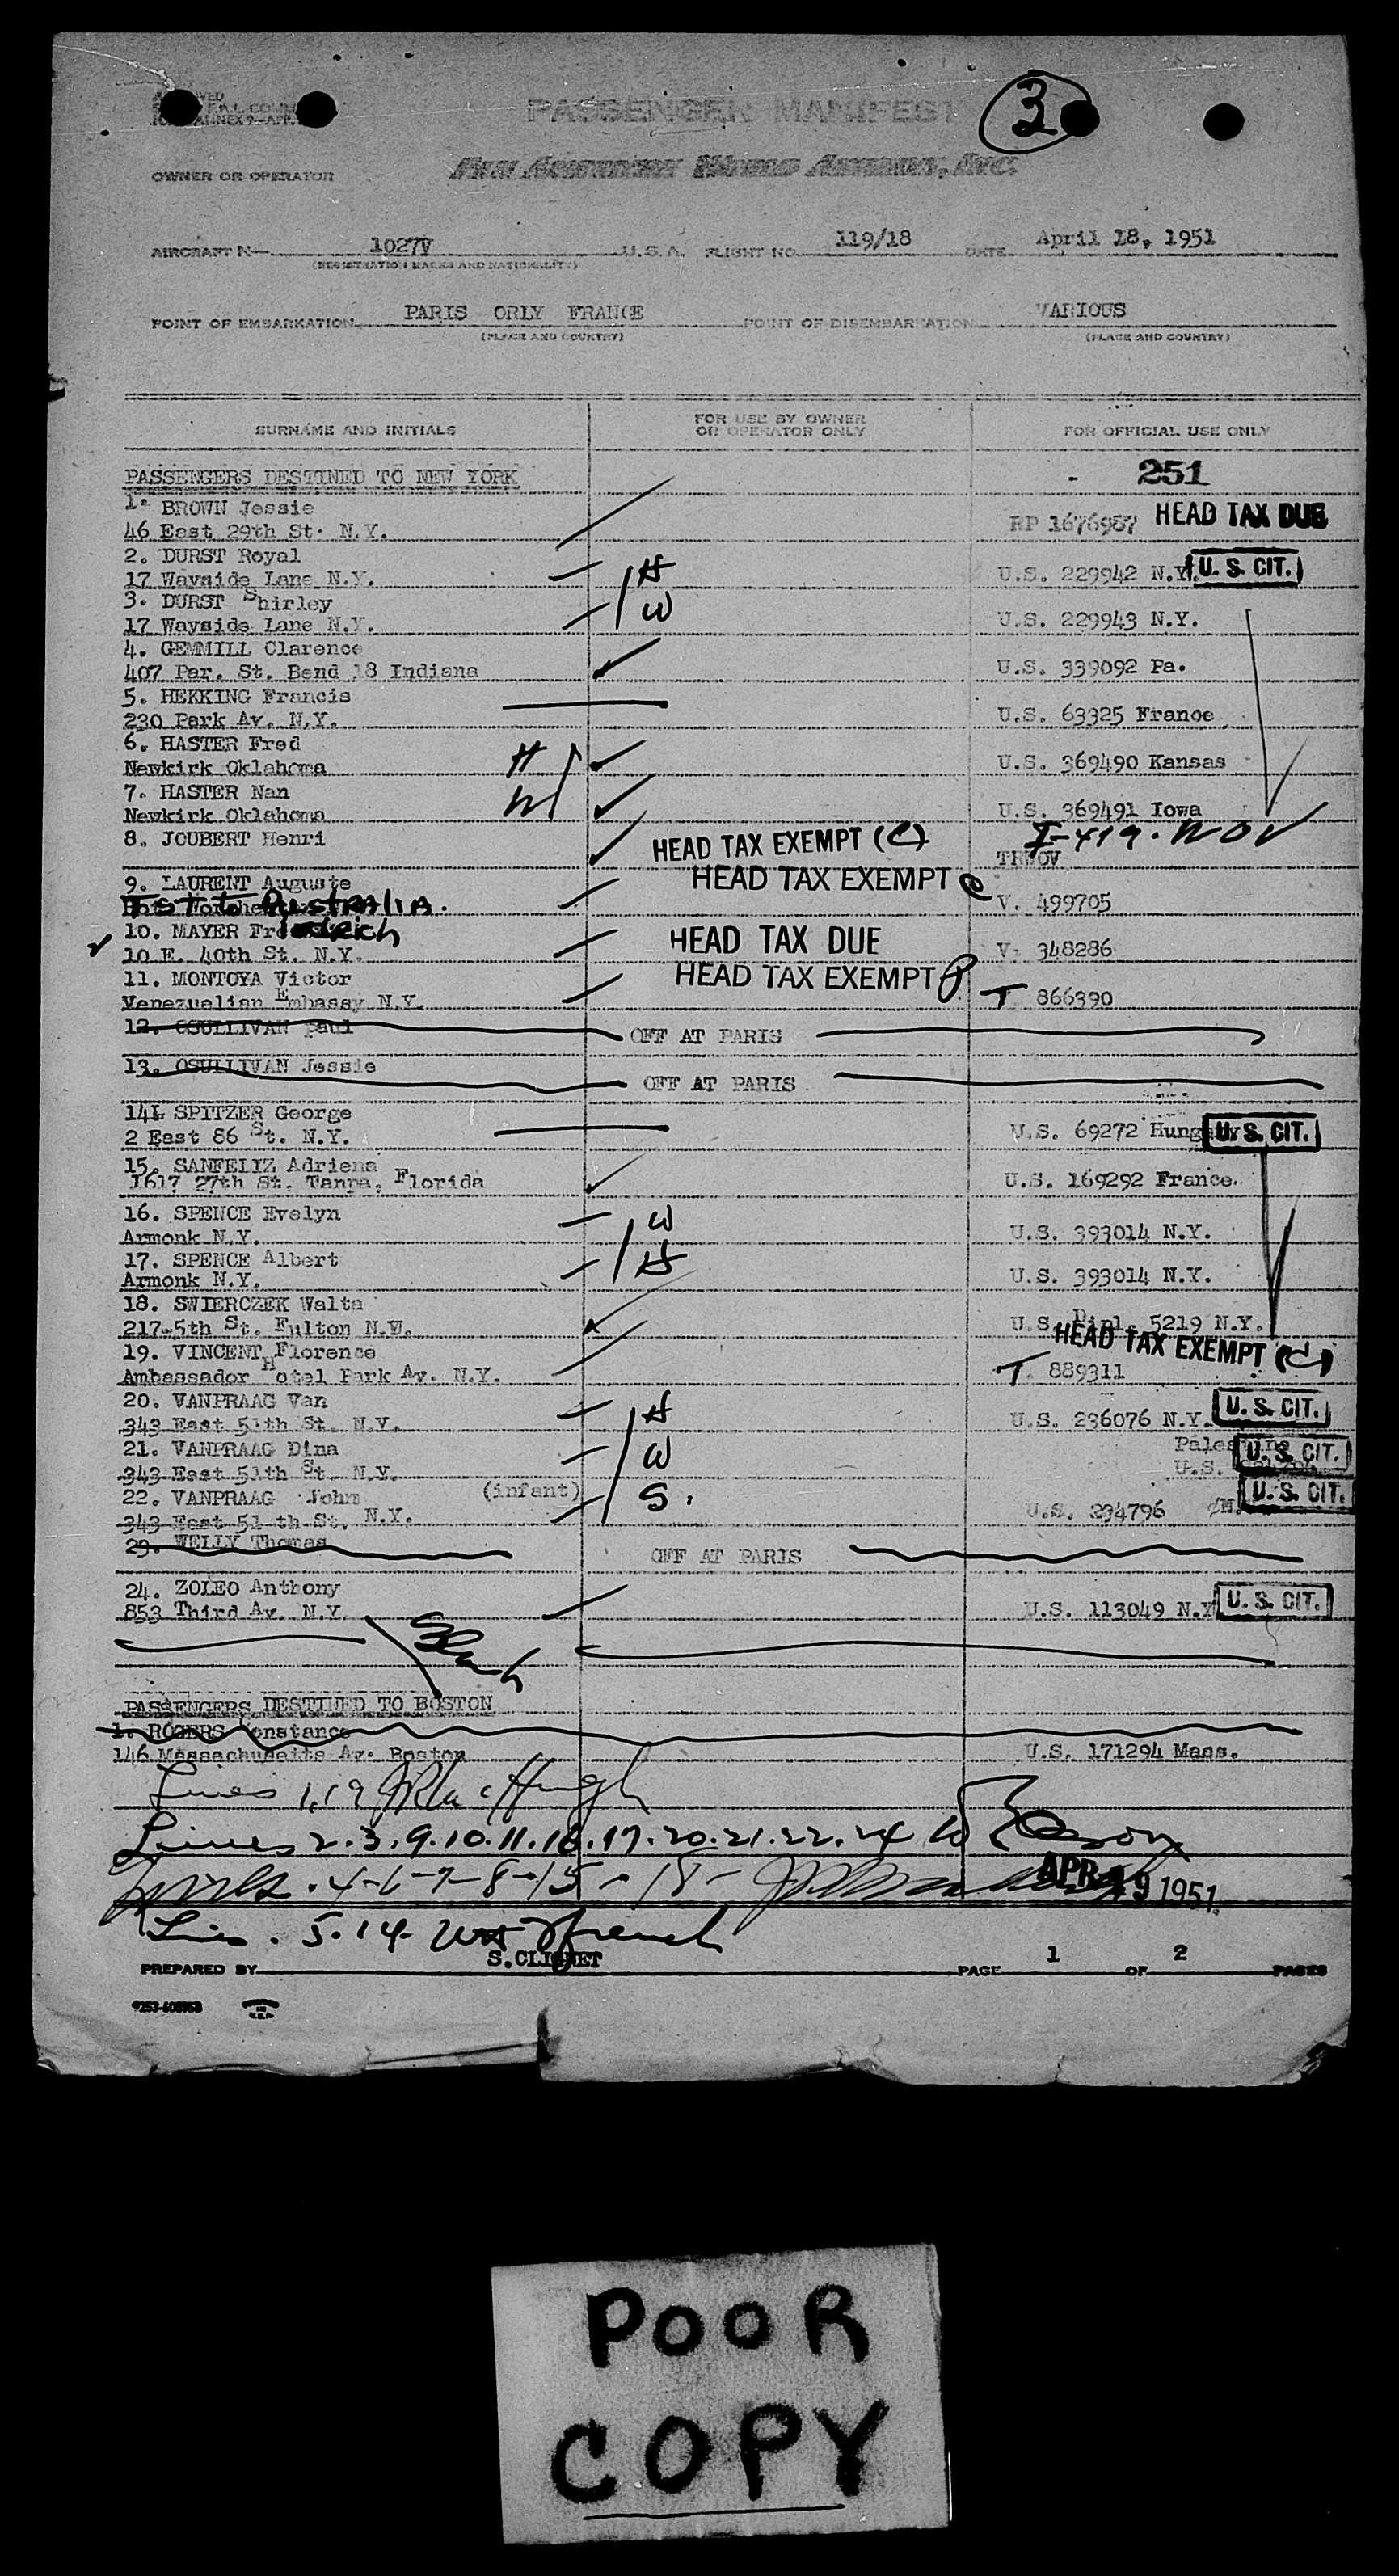 PASSENGER MANIFEST
3
OWNER OR OPERATOR
PAN AMERICAN WORLD AIRWAYS, INC.
AIRCRAFT N— 1027V U.S.A. FLIGHT NO. 119/18 DATE April 18, 1951
(REGISTRATION MARKS AND NATIONALITY)
POINT OF EMBARKATION PARIS ORLY FRANCE POINT OF DISEMBARKATION VARIOUS
(PLACE AND COUNTRY) (PLACE AND COUNTRY)
SURNAME AND INITIALS FOR USE BY OWNER OR OPERATOR ONLY FOR OFFICIAL USE ONLY
PASSENGERS DESTINED TO NEW YORK - 251
1. BROWN Jessie
46 East 29th St. N.Y. RP 1676987 HEAD TAX DUE
2. DURST Royal
17 Wayside Lane N.Y. H U.S. 229942 N.Y. U. S. CIT.
3. DURST Shirley
17 Wayside Lane N.Y. W U.S. 229943 N.Y.
4. GEMMILL Clarence
407 Par. St. Bend 18 Indiana U.S. 339092 Pa.
5. HEKKING Francis
230 Park Av. N.Y. U.S. 63325 France
6. HASTER Fred
Newkirk Oklahoma H U.S. 369490 Kansas
7. HASTER Nan
Newkirk Oklahoma W U.S. 369491 Iowa
8. JOUBERT Henri HEAD TAX EXEMPT (C) I-419. WOV
TRWOV
9. LAURENT Auguste HEAD TAX EXEMPT
TST to AUSTRALIA. V. 499705
10. MAYER Friedrich
10 E. 40th St. N.Y. HEAD TAX DUE V. 348286
11. MONTOYA Victor HEAD TAX EXEMPT
Venezuelian Embassy N.Y. T 866390
12. OSULLIVAN paul OFF AT PARIS
13. OSULLIVAN Jessie OFF AT PARIS
14. SPITZER George
2 East 86 St. N.Y. U.S. 69272 Hungary U. S. CIT.
15. SANFELIZ Adriena
1617 27th St. Tanpa. Florida U.S. 169292 France.
16. SPENCE Evelyn W
Armonk N.Y. U.S. 393014 N.Y.
17. SPENCE Albert H
Armonk N.Y. U.S. 393014 N.Y.
18. SWIERCZEK Walta
217-5th St. Fulton N.W. U.S. Dipl. 5219 N.Y.
19. VINCENT Florence HEAD TAX EXEMPT (C)
Ambassador Hotel Park Av. N.Y. T. 889311
20. VANPRAAG Van H
343 East 51th St. N.Y. U.S. 236076 N.Y. U. S. CIT.
21. VANPRAAG Dina W Palestine U. S. CIT.
343 East 51th St. N.Y. U.S.
22. VANPRAAG John (infant) S. U. S. CIT.
343 East 51 th St. N.Y. U.S. 234796
23. WELLY Thomas OFF AT PARIS
24. ZOLEO Anthony
853 Third Av. N.Y. U.S. 113049 N.Y. U. S. CIT.
PASSENGERS DESTINED TO BOSTON
1. ROGERS Constance
146 Massachusetts Av. Boston U.S. 171294 Mass.
Lines 1,19
Lines 2.3.9.10.11.16.17.20.21.22.24
Lines. 4-6-7-8-15-18- APR 19 1951
Lines. 5.14. French
PREPARED BY S.CLIGNET PAGE 1 OF 2 PAGES
POOR
COPY